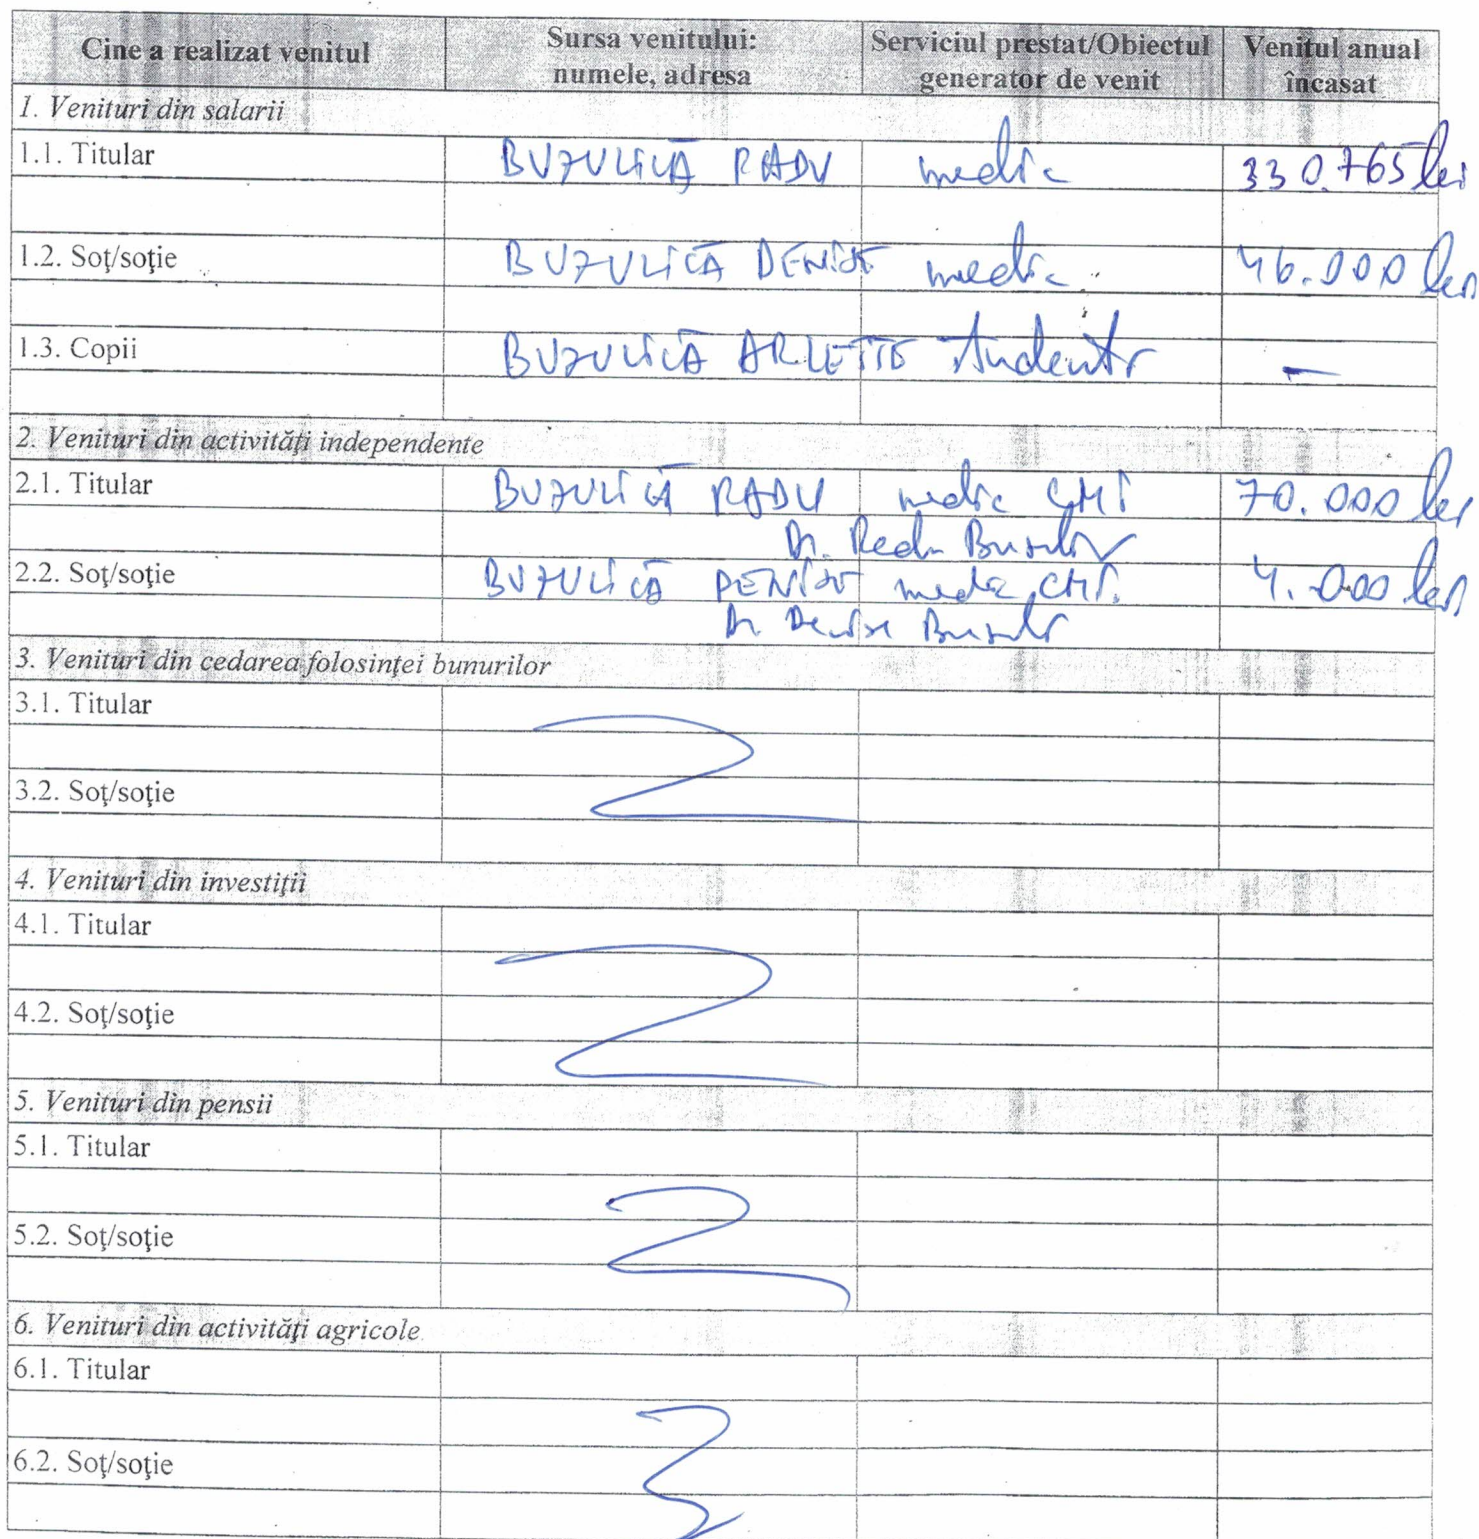 Cine a realizat venitul Sursa venitului: numele, adresa Serviciul prestat/Obiectul generator de venit Venitul anual încasat
1. Venituri din salarii
1.1. Titular BUZULICĂ RADU medic 330.765 lei
1.2. Soţ/soţie BUZULICĂ DENISE medic 46.000 lei
1.3. Copii BUZULICĂ ARLETTE studentă —
2. Venituri din activităţi independente
2.1. Titular BUZULICĂ RADU medic CMI 70.000 lei
Dr. Radu
2.2. Soţ/soţie BUZULICĂ DENISE medic CMI. 4.000 lei
Dr. Denise
3. Venituri din cedarea folosinţei bunurilor
3.1. Titular
3.2. Soţ/soţie
4. Venituri din investiţii
4.1. Titular
4.2. Soţ/soţie
5. Venituri din pensii
5.1. Titular
5.2. Soţ/soţie
6. Venituri din activităţi agricole
6.1. Titular
6.2. Soţ/soţie